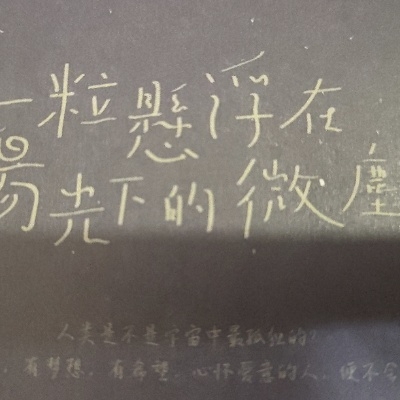 一粒懸浮在
陽光下的微塵
人类是不是宇宙中最孤独的?
,有梦想,有希望,心怀爱意的人,便不会